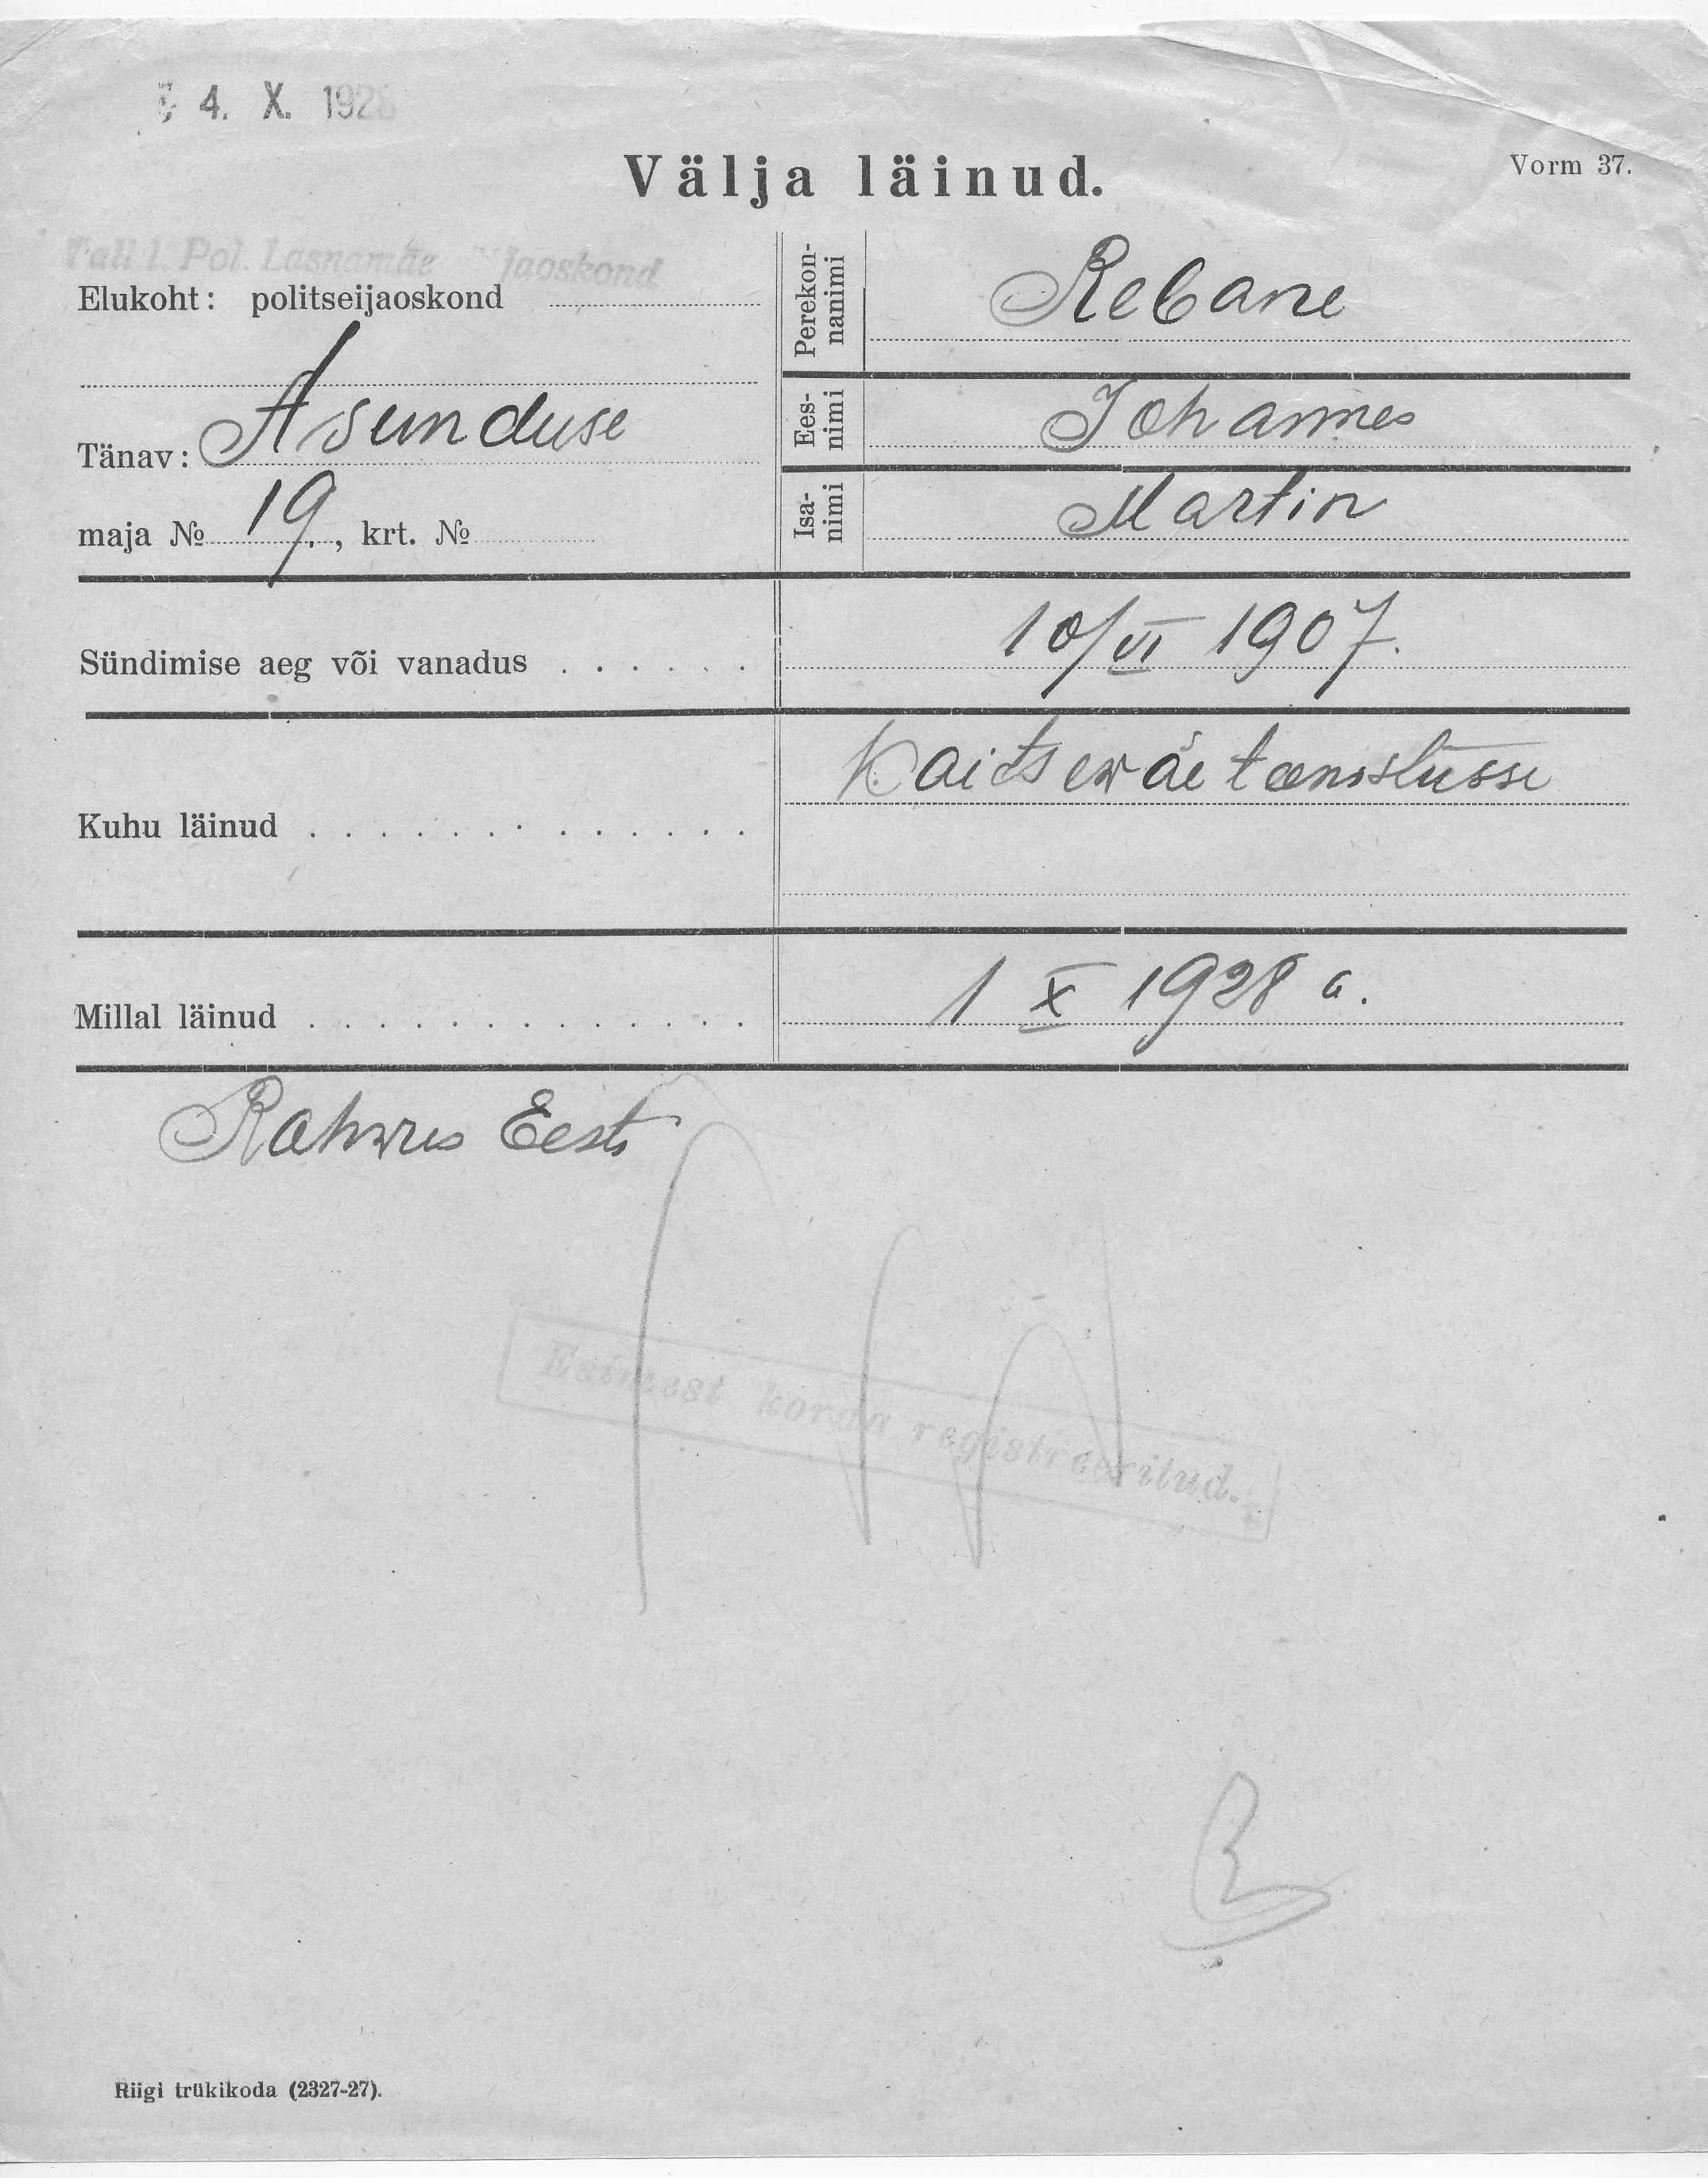 4. X. 1928
Välja läinud.
Vorm 37.
Tall. Pol. Lasnamäe jaoskond
Elukoht: politseijaoskond
Tänav: Asunduse
maja № 19, krt. №
Perekon-
nanimi
Rebane
Ees-
nimi
Johannes
Isa-
nimi
Martin
Sündimise aeg või vanadus . . . . . .
10/VI 1907.
Kuhu läinud . . . . . . . . . . . . .
Kaitsewäe teenistusse
Millal läinud . . . . . . . . . . . . .
1 X 1928 a.
Rahwus Eesti
Esimest korda registreeritud.
Riigi trükikoda (2327-27).